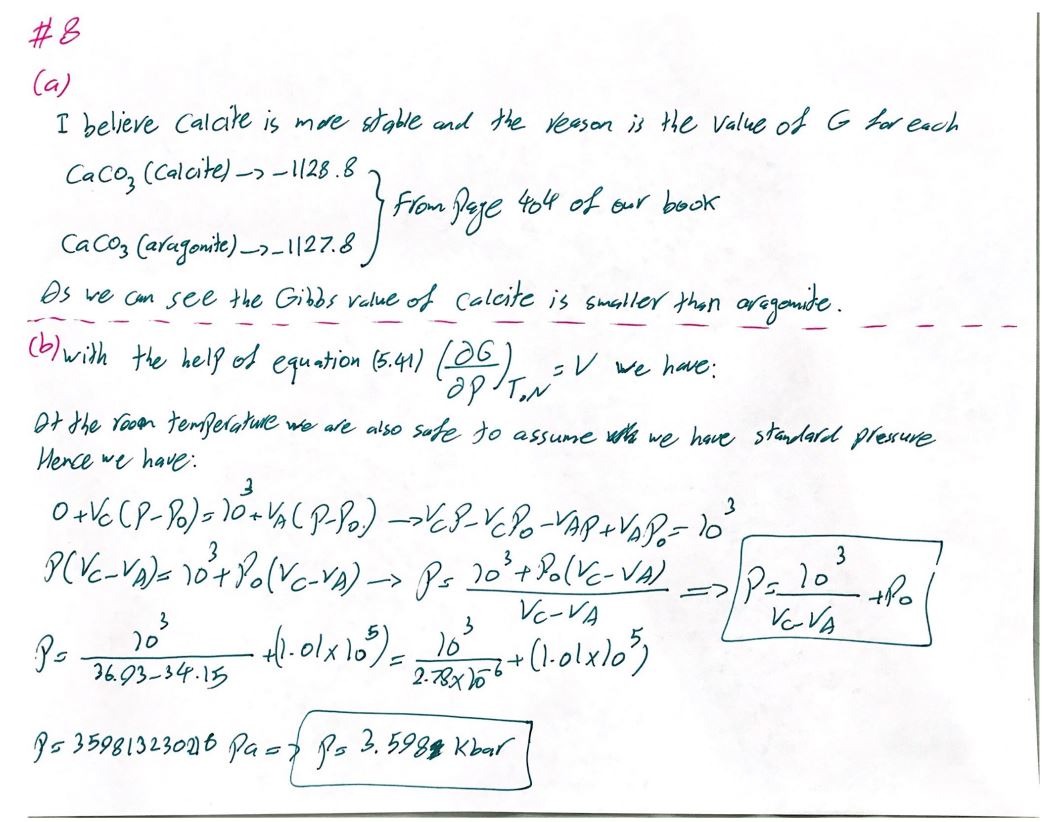 #8
(a)
I believe Calcite is more stable and the reason is the value of G for each
CaCO₃ (Calcite) -> -1128.8
CaCO₃ (aragonite) -> -1127.8
} From Page 404 of our book
As we can see the Gibbs value of calcite is smaller than aragonite.
(b) with the help of equation (5.41) (∂G/∂P)T,N = V we have:
At the room temperature we are also safe to assume we have standard pressure
Hence we have:
0+Vc(P-P₀)=10³+VA(P-P₀) → VcP-VcP₀-VAP+VAP₀=10³
P(Vc-VA)=10³+P₀(Vc-VA) → P= 10³+P₀(Vc-VA) / Vc-VA => P= 10³ / Vc-VA +P₀
P= 10³ / 36.93-34.15 +(1.01x10⁵)= 10³ / 2.78x10⁻⁶ +(1.01x10⁵)
Pa => P= 3.598 Kbar